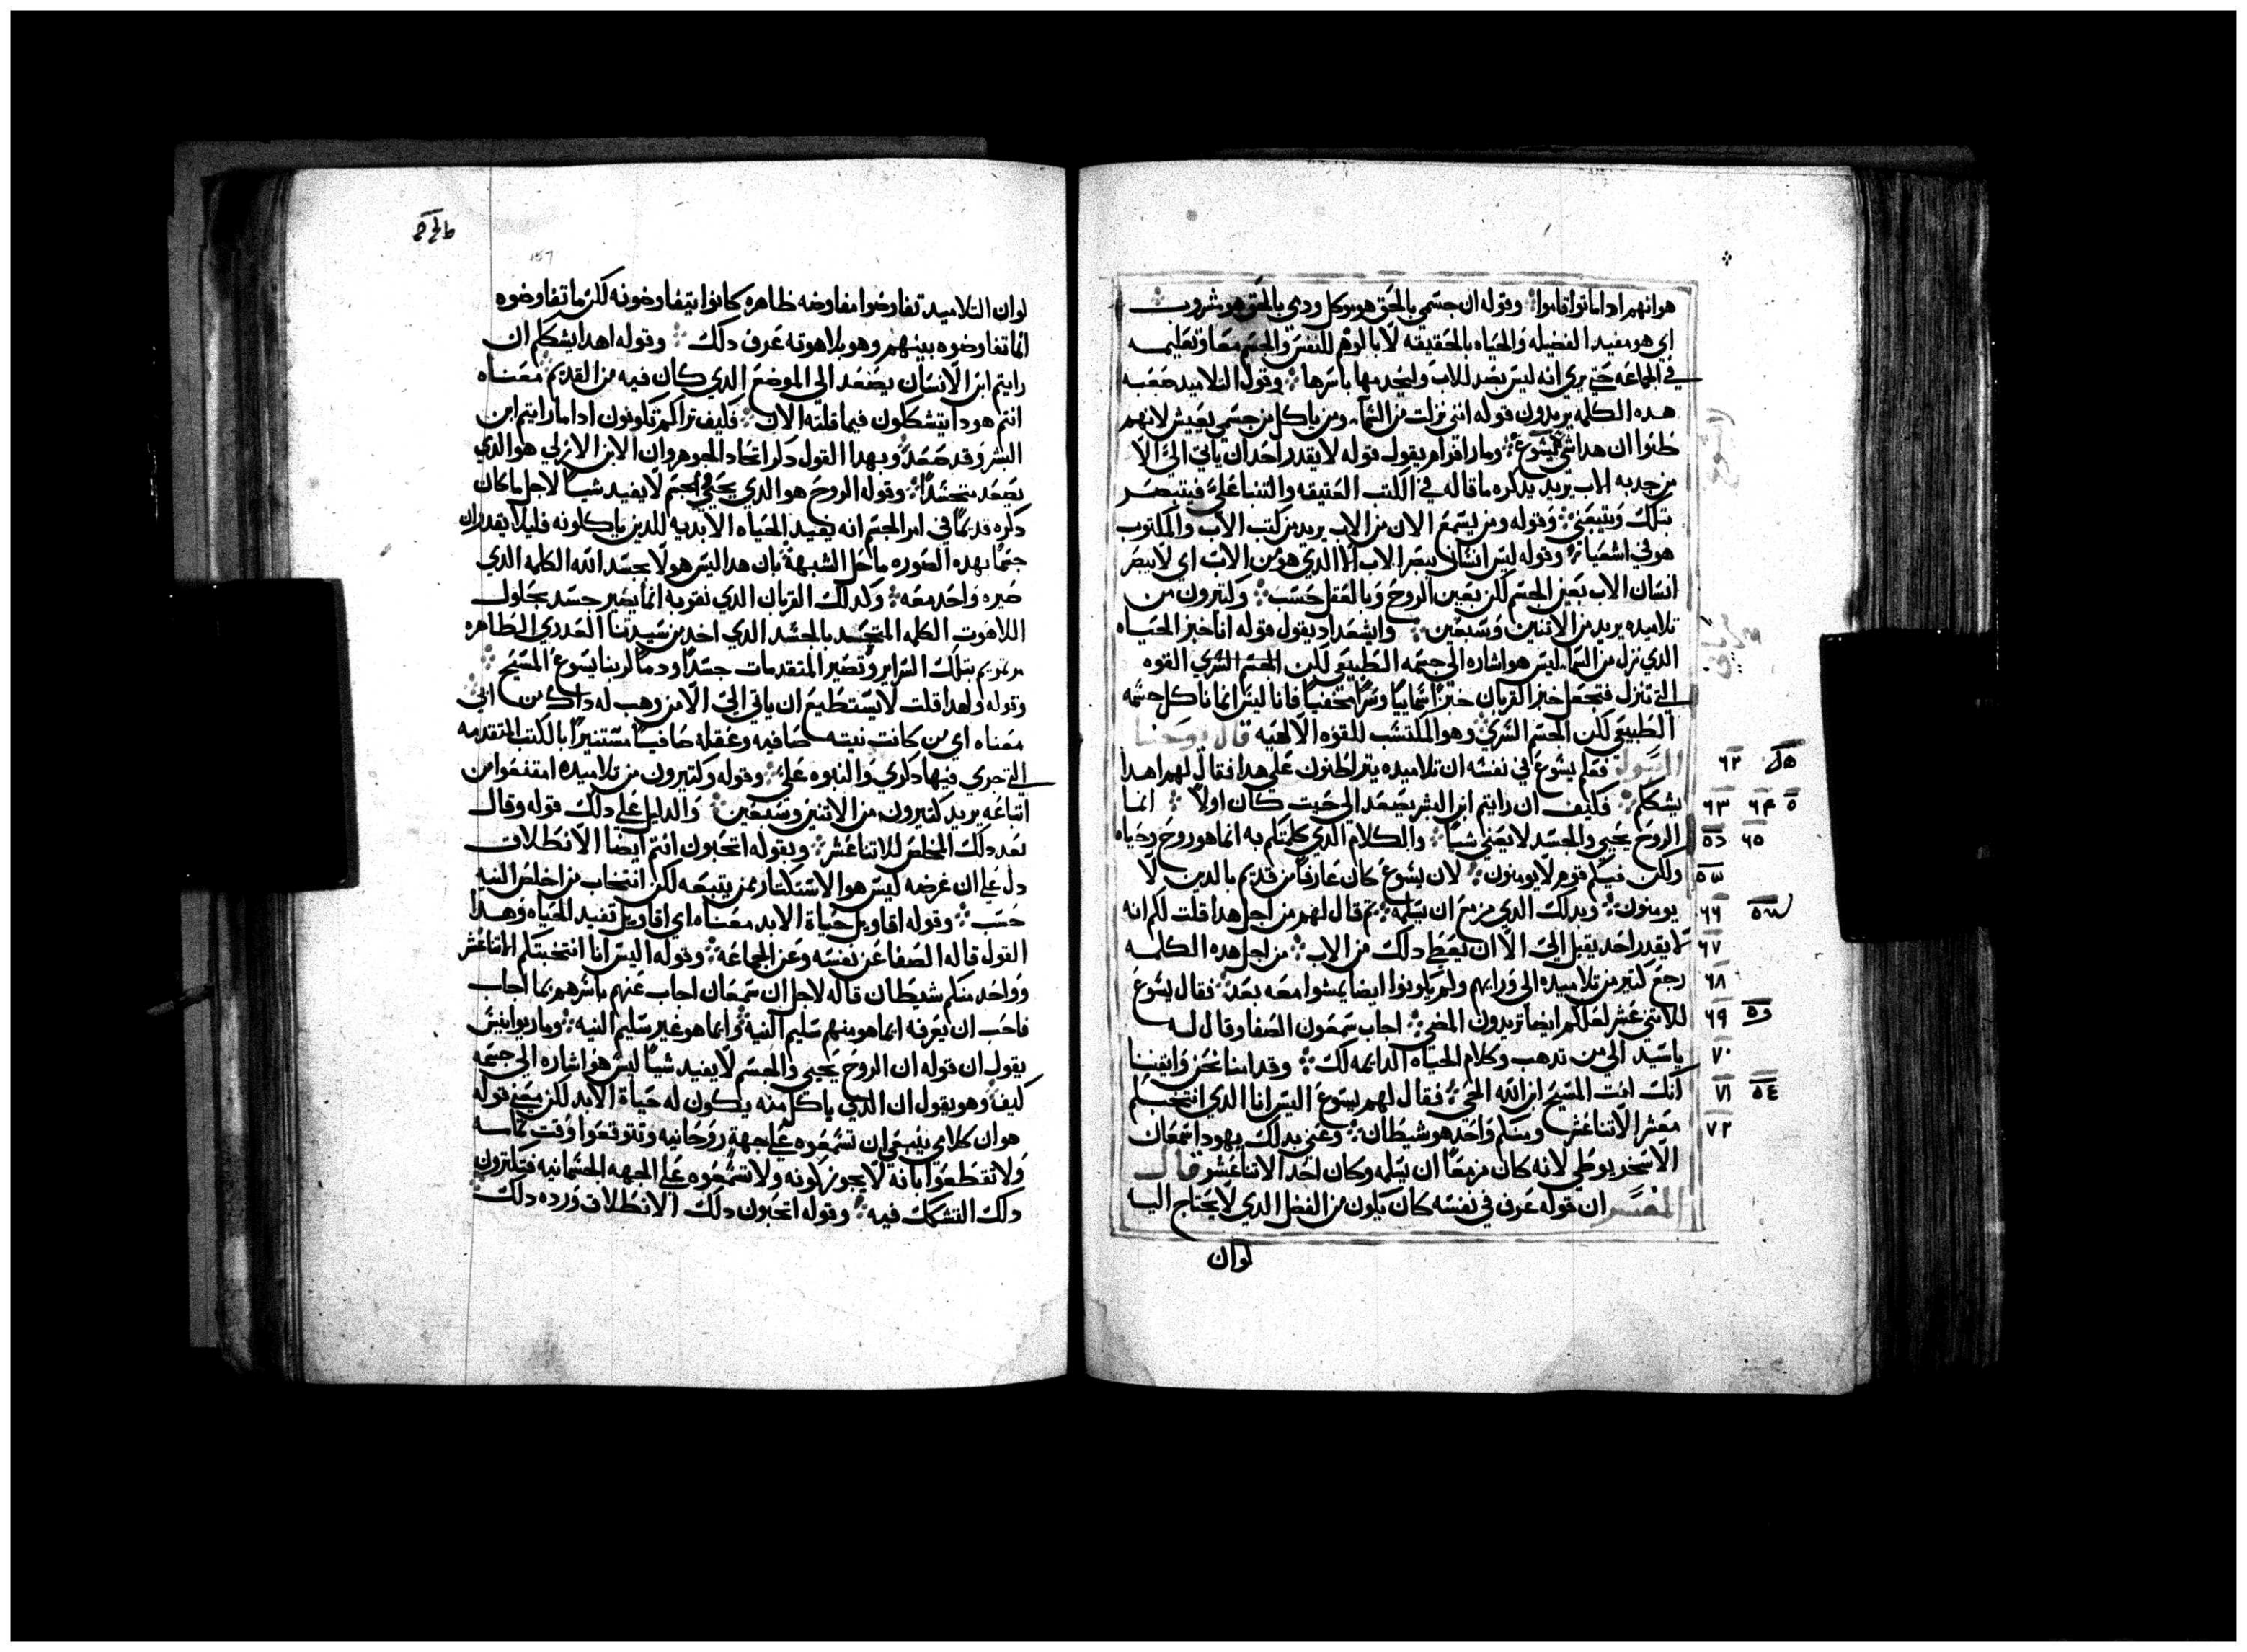 هو انهم اداماتوا قاموا وقوله ان جسمي بالحق هو موكل ودمي بالحق هو شروب
اي هو مفيد الفضيله والحياه بالحقيقه لا بالوهم للنفس والجسم معًا وتعليمه
في الجماعه حتي يري انه ليس بضد للاب وليجدبها باسرها وقول التلاميد صعبه
هده الكلمه يريدون قوله انني نزلت من السما ومن ياكل من جسمي يعيش لانهم
ظنوا ان هدا شي يشوع ومار افرام يقول قوله لا يقدر احد ان ياتي الي الا
من جدبه الاب يريد يدكره ما قاله في الكتب العتيقه والتنبا علي فيتبصر
بتلك ويتبعني وقوله ومن يسمع الان من الاب يريد من كتب الاب والمكتوب
هو في اشعيا وقوله ليس انسان يبصر الاب الا الدي هو من الاب اي لا يبصر
انسان الاب بعين الجسم لكن بعين الروح وبالعقل حسب وكتيرون من
تلاميده يريد من الاتنين وسبعين وايشعداد يقول قوله انا خبز الحياه
الدي نزل من السما ليس هو اشاره الي جسمه الطبيعي لكن الجسم السري القوه
التي تنزل فتجعل خبز القربان خبزًا سماييًا وسرًا مخفيًا فانا ليس انما ناكل جسمه
الطبيعي لكن الجسم السري وهو المكتسب للقوه الالهيه قال يوحنا
٦٢ الرسول فعلم يشوع في نفسه ان تلاميده يتراطنون علي هدا فقال لهم اهدا
٦٣ ٦٤ يشككم فكيف ان رايتم ابن البشر يصعد الي حيت كان اولًا انما
٦٥ الروح يحيي والجسد لا يغني شيًا والكلام الدي كلمتكم به انما هو روح وحياه
ولكن فيكم قوم لا يومنون لان يشوع كان عارفًا من قديم بالدين لا
٦٦ يومنون وبدلك الدي مزمع ان يسلمه تم قال لهم من اجل هدا قلت لكم انه
٦٧ لا يقدر احد يقبل الي الا ان يعطي دلك من الاب من اجل هده الكلمه
٦٨ رجع كتير من تلاميده الي ورايهم ولم يكونوا ايضا يمشوا معه بعد فقال يشوع
٦٩ للاتني عشر لعلكم ايضا تريدون المضي اجاب سمعون الصفا وقال له
٧٠ ياسيد الي من ندهب وكلام الحياه الدايمه لك وقد امنا نحن وايقنا
٧١ انك انت المسيح ابن الله الحي فقال لهم يسوع اليس انا الدي انتخبتكم
٧٢ معشر الاتنا عشر ومنكم واحد هو شيطان وعني بدلك يهودا سمعان
الاسخريوطي لانه كان مزمعًا ان يسلمه وكان احد الاتنا عشر قال
المفسر ان قوله عرف في نفسه كان يكون من الفضل الدي لا يحتاج اليه
لوان
157
لوان التلاميد تفاوضوا مفاوضه ظاهره كانوا يتفاوضونه لكن ما تفاوضوه
انما تفاوضوه بينهم وهو بلاهوته عرف دلك وقوله اهدا يشككم ان
رايتم ابن الانسان يصعد الي الموضع الدي كان فيه من القديم معناه
انتم هودا يتشككون فيما قلته الان فكيف تراكم تكونون ادا ما رايتم ابن
البشر وقد صعد وبهدا القول دكر اتحاد الجوهر وان الابن الازلي هو الدي
يصعد متجسدًا وقوله الروح هو الدي يحيي والجسم لا يفيد شيًا لاجل ما كان
دكره قديمًا في امر الجسم انه يفيد الحياه الابديه للدين ياكلونه فليلا يقدر ان
جسمًا بهده الصوره ما حل الشبهة بان هدا ليس هو لا بجسد الله الكلمه الدي
صيره واحد معه وكدلك القربان الدي نقربه انما يصير جسد بحلول
اللاهوت الكلمه المتجسد بالجسد الدي اخد من سيدتنا العدري الطاهره
مرتمريم بتلك السراير وتصير المتقدمات جسدًا ودمًا لربنا يسوع المسيح
وقوله ولهدا قلت لا يستطيع ان ياتي الي الا من وهب له داك من ابي
معناه اي من كانت نيته صافيه وعقله صافيًا مستنيرًا بالكتب المتقدمه
التي جري فيها دكري والنبوه علي وقوله وكتيرون من تلاميده امتنعوا من
اتباعه يريد كتيرون من الاتنين وسبعين والدليل علي دلك قوله وقال
بعد دلك المخلص للاتنا عشر وبقوله اتحبون انتم ايضا الانطلاق
دل علي ان غرضه ليس هو الاستكتار بمن يتبعه لكن انتخاب من اخلص النيه
حسب وقوله اقاويل حياة الابد معناه اي اقاويل تفيد الحياه وهدا
القول قاله الصفا عن نفسه وعن الجماعه وقوله اليس انا انتخبتكم الاتنا عشر
وواحد منكم شيطان قاله لاجل ان سمعان اجاب عنهم باسرهم بما اجاب
فاحب ان يعرفه انما هو منهم سليم النية وانما هو غير سليم النيه وماريوانيس
يقول ان قوله ان الروح يحيي والجسم لا يفيد شيًا ليس هو اشاره الي جسمه
كيف وهو يقول ان الدي ياكل منه يكون له حياة الابد لكن معني قوله
هو ان كلامي ينبغي ان تسمعوه علي جهة روحانيه وتتوقعوا وقت تمامه
ولا تقطعوا بانه لا يجوز كونه ولا تسمعوه علي الجهه الجسمانيه فيكترون
دلك التشكك فيه وقوله اتحبون دلك الانطلاق ورده دلك